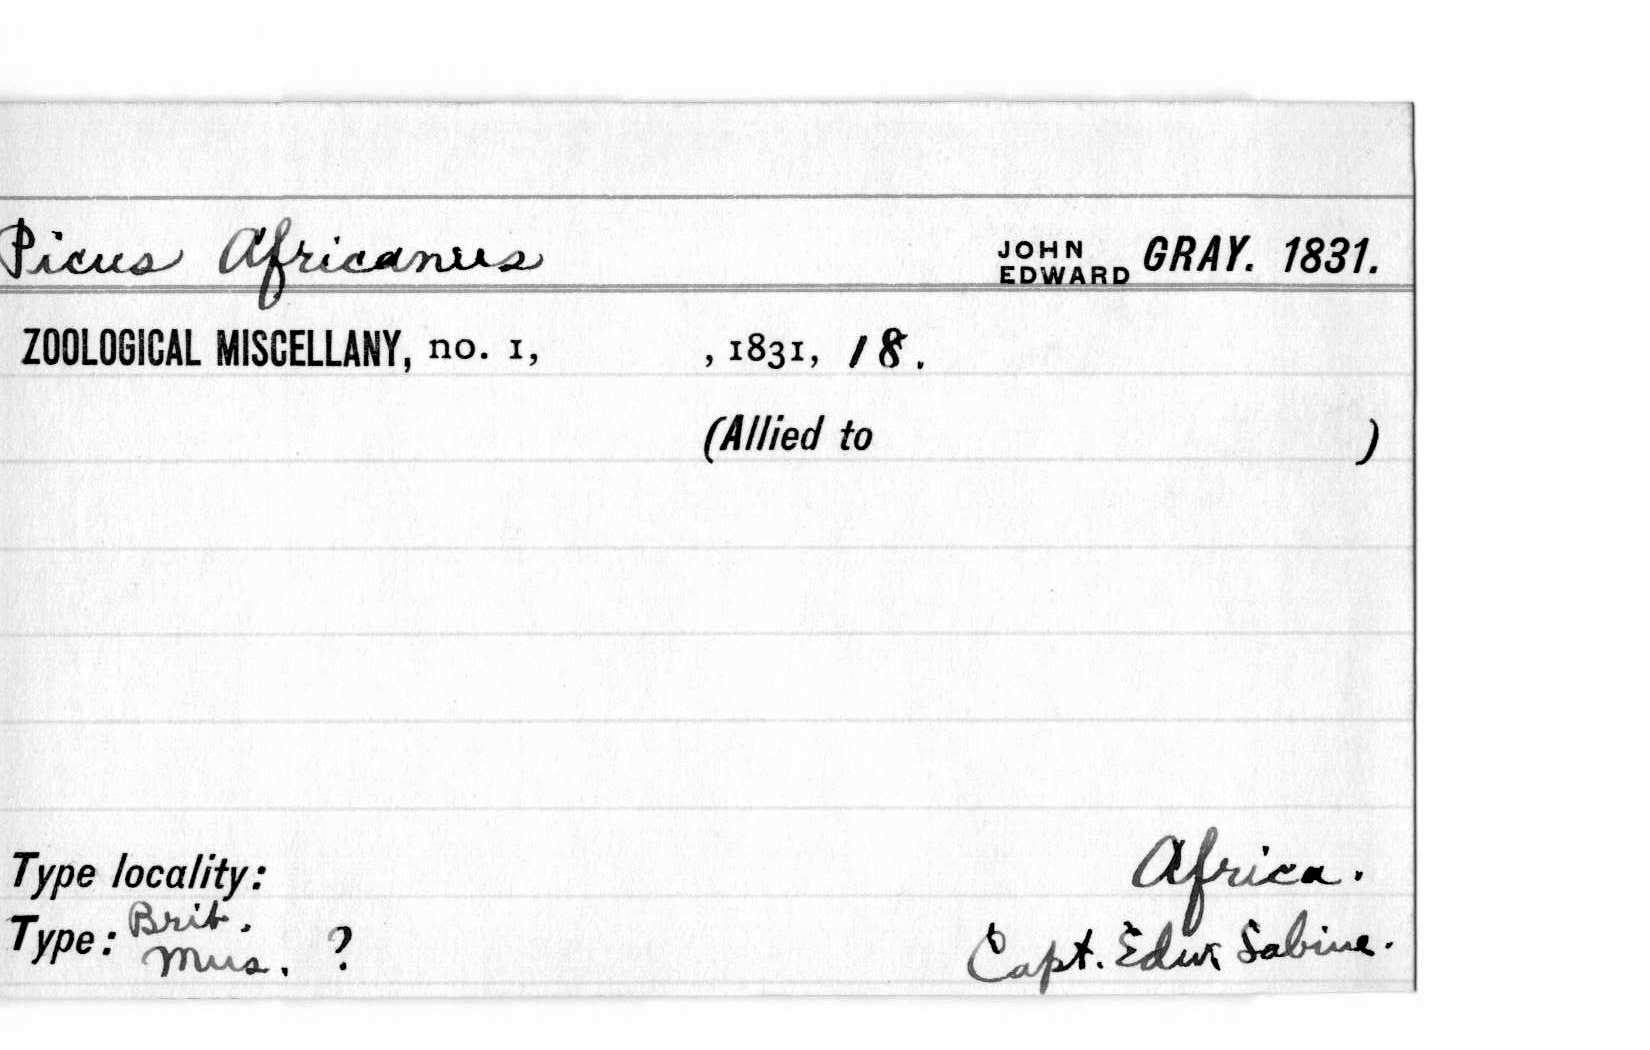 Picus Africanus JOHN EDWARD GRAY. 1831.
ZOOLOGICAL MISCELLANY, no. 1, , 1831, 18.
(Allied to )
Type locality: Africa.
Type: Brit. Mus. ? Capt. Edw Sabine.